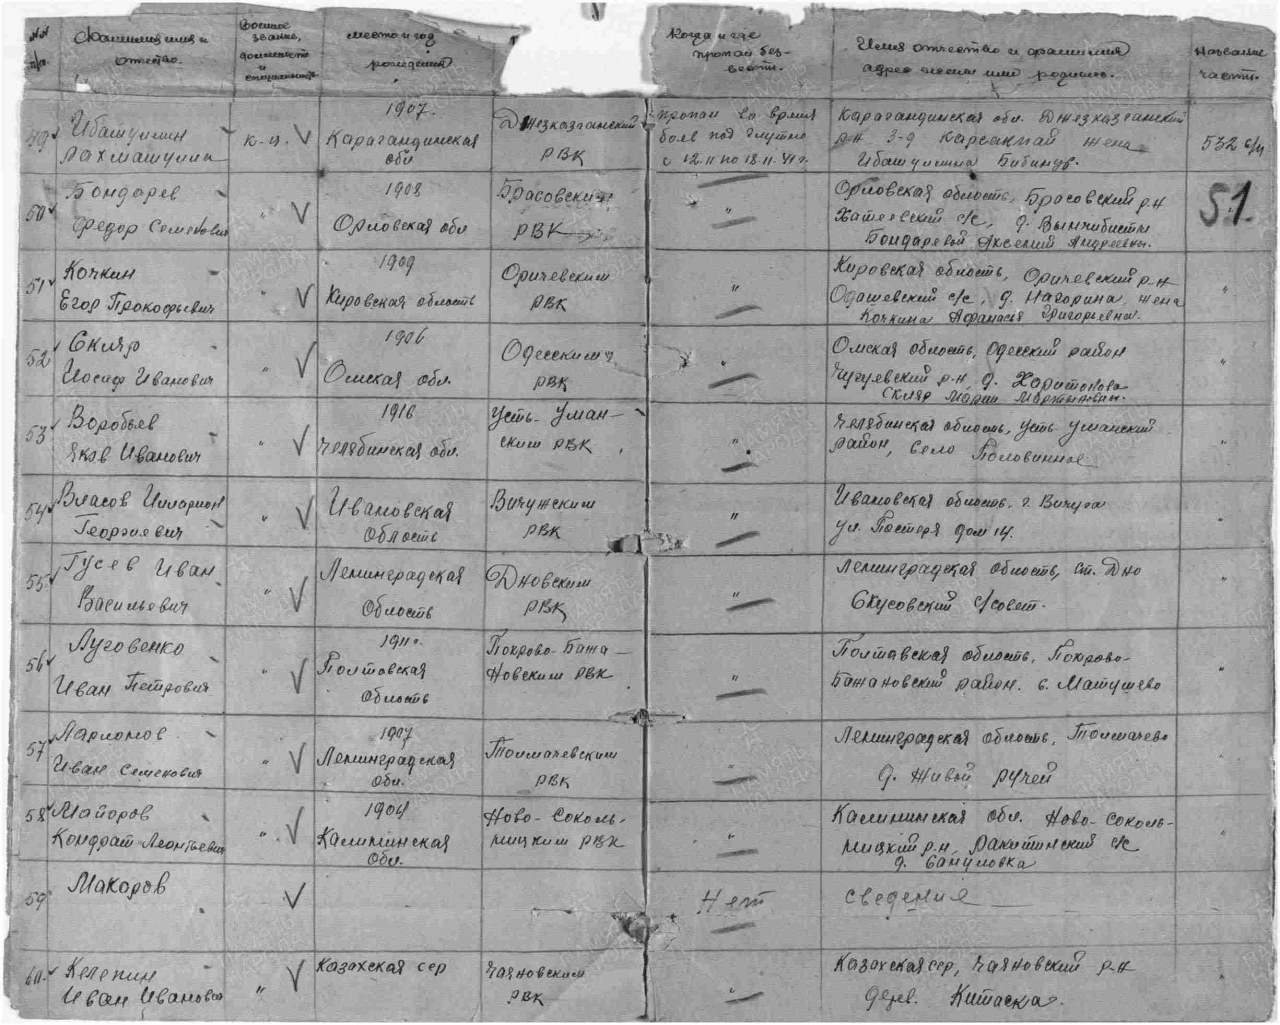 №№ п/п.
Фамилия имя и отчество.
Военное звание, должность и специальность
место и год рождения
Когда и где пропал без-вести.
Имя отчество и фамилия адрес жены или родных.
Название части.
49 Ибатуллин
к-ц.
1907. Карагандинская обл
Джезказганский РВК
пропал во время
боев под Глутно
с 12.11 по 18.11.41г.
Карагандинская обл. Джезказганский
р-н 3-д Карсакпай жена
532 с/п
50 Бондарев
Федор Семенович
"
1908
Орловская обл
Брасовским
РВК
"
Орловская область, Брасовский р-н
с/с, д.
Бондаревой Аксении Андреевны.
51
51 Кочкин
Егор Прокофьевич
"
1909
Кировская область
Оричевским
РВК
"
Кировская область, Оричевский р-н
с/с, д. Нагорина, жена
Кочкина Афанасия Григорьевна.
"
52 Скляр
Иосиф Иванович
"
1906
Омская обл.
Одесским
РВК
"
Омская область, Одесский район
р-н д. Харитонова
Скляр Марии Мартыновны.
"
53 Воробьев
Яков Иванович
"
1916
Челябинская обл.
Усть-Уман-
ским РВК
"
Челябинская область, Усть Уманский
район, село Половинное
"
54 Власов Илларион
Георгиевич
"
Ивановская
Область
Вичужским
РВК
"
Ивановская область. г. Вичуга
ул. Пастера дом 14.
"
55 Гусев Иван
Васильевич
"
Ленинградская
Область
Дновским
РВК
"
Ленинградская область, ст. Дно
Скусовский с/совет.
"
56 Луговенко
Иван Петрович
"
1911г.
Полтавская
Область
Покрово-Бажа-
новским РВК
"
Полтавская область, Покрово-
Бажановский район. с. Матушево
"
57 Ларионов
Иван Семенович
"
1907
Ленинградская
Обл.
Толмачевским
РВК
"
Ленинградская область, Толмачево
д. Живой ручей
"
58 Майоров
Кондрат Леонтьевич
"
1904
Калининская
Обл.
Ново-Соколь-
ницким РВК
"
Калининская обл. Ново-Соколь-
ницкий р-н, Ракитинский с/с
"
59 Макаров
Нет
сведения
60. Келепин
Иван Иванович
"
Казахская сер
Чаяновским
РВК
"
Казахская сер, Чаяновский р-н
дерев. Китаска.
"